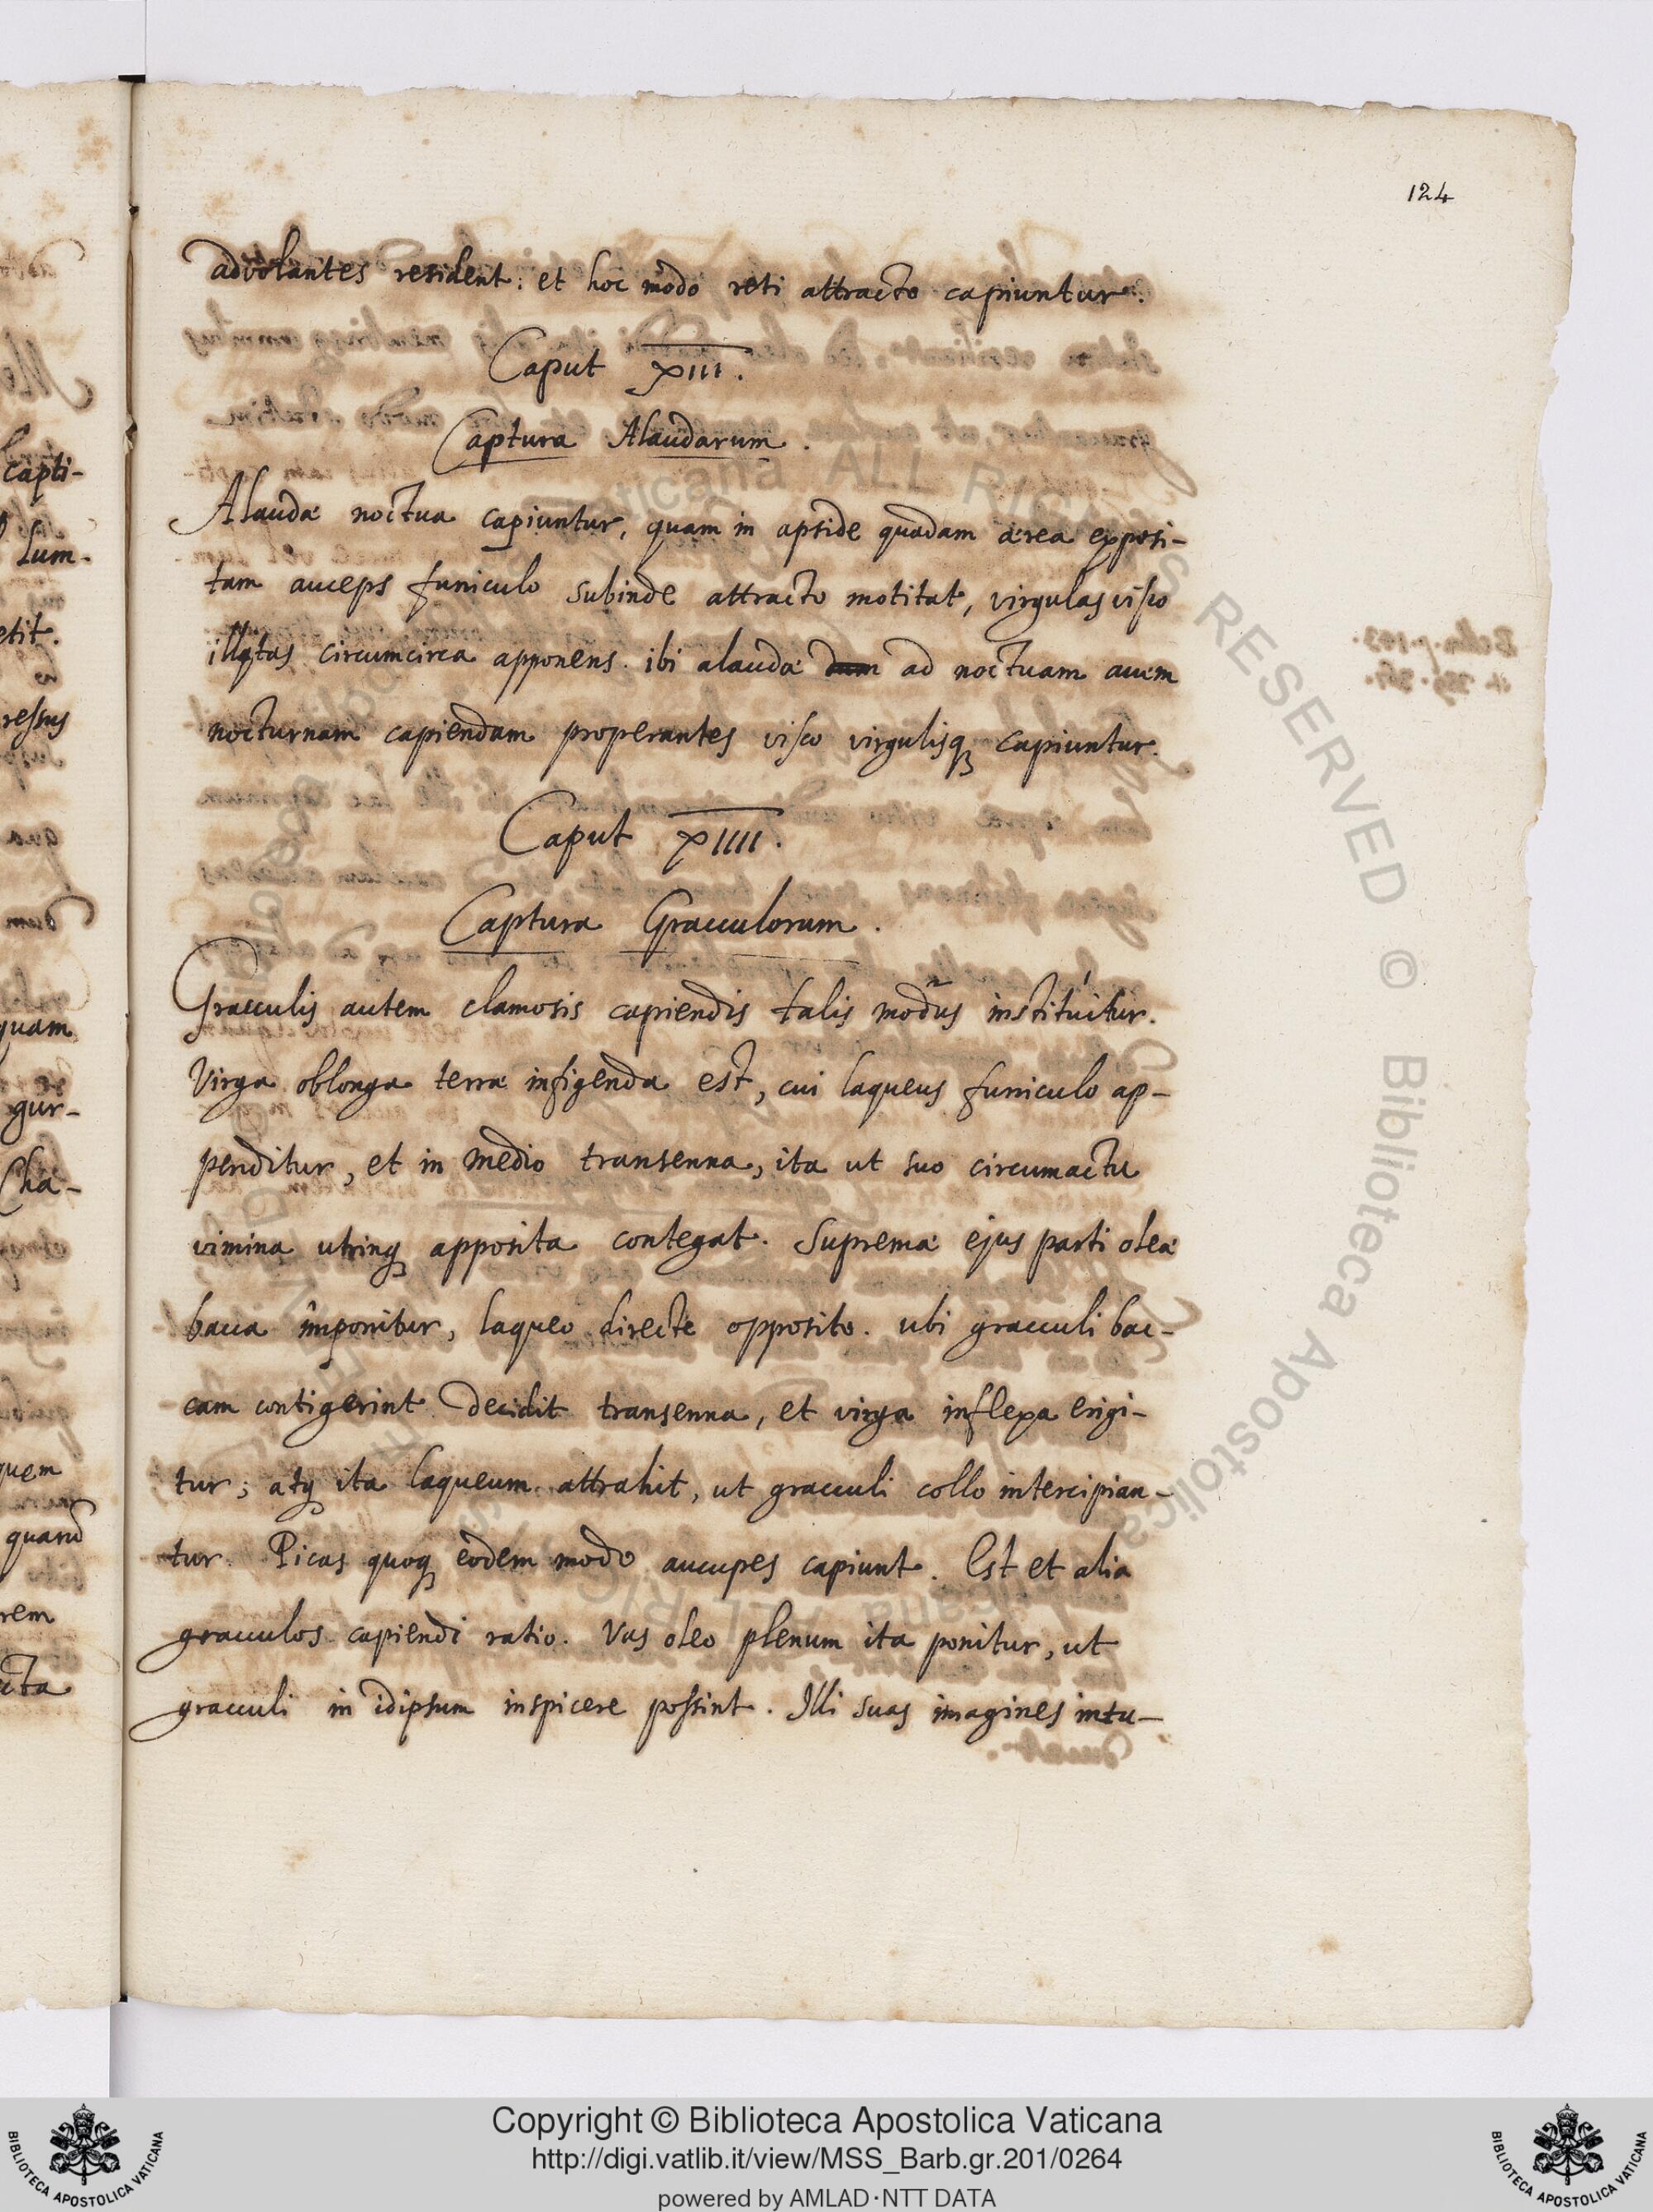 124
advolantes resident: et hoc modo reti attracto capiuntur.
Caput XIII.
Captura Alaudarum.
Alaudæ noctua capiuntur, quam in apside quadam ærea exposi-
tam auceps funiculo subinde attracto motitat, virgulas visco
illitas circumcirca apponens. ibi alaudæ dum ad noctuam auem
nocturnam capiendam properantes visco virgulisq capiuntur.
Caput XIIII.
Captura Gracculorum.
Gracculis autem clamosis capiendis talis modus instituitur.
Virga oblonga terræ infigenda est, cui laqueus funiculo ap-
penditur, et in medio transenna, ita ut suo circumactu
vimina utrinq apposita contegat. Supremæ ejus parti oleæ
bacca imponitur, laqueo directe opposito. ubi gracculi bac-
cam contigerint decidit transenna, et virga inflexa erigi-
tur; atq ita laqueum attrahit, ut gracculi collo intercipian-
tur. Picas quoq eodem modo aucupes capiunt. Est et alia
gracculos capiendi ratio. Vas oleo plenum ita ponitur, ut
gracculi in idipsum inspicere possint. Illi suas imagines intu-
capti-
sum-
etit.
ressus
quam
gur-
Cha-
quem
quarū
rem
cta
Copyright © Biblioteca Apostolica Vaticana
http://digi.vatlib.it/view/MSS_Barb.gr.201/0264
powered by AMLAD·NTT DATA
BIBLIOTECA APOSTOLICA VATICANA
BIBLIOTECA APOSTOLICA VATICANA